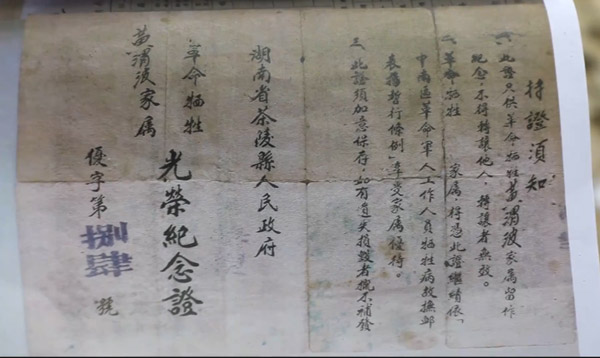 持證須知
一、此證只供革命牺牲黃渭波家属留作
紀念，不得轉讓他人，轉讓者無效。
二、革命牺牲　　家属，得憑此證繼續依「
中南區革命軍人工作人員牺牲病故撫卹
表揚暫行條例」享受家属優待。
三、此證須加意保存，如有遺失損毀者概不補發
湖南省茶陵縣人民政府
革命牺牲　光榮紀念證
黃渭波家属
優字第捌肆號